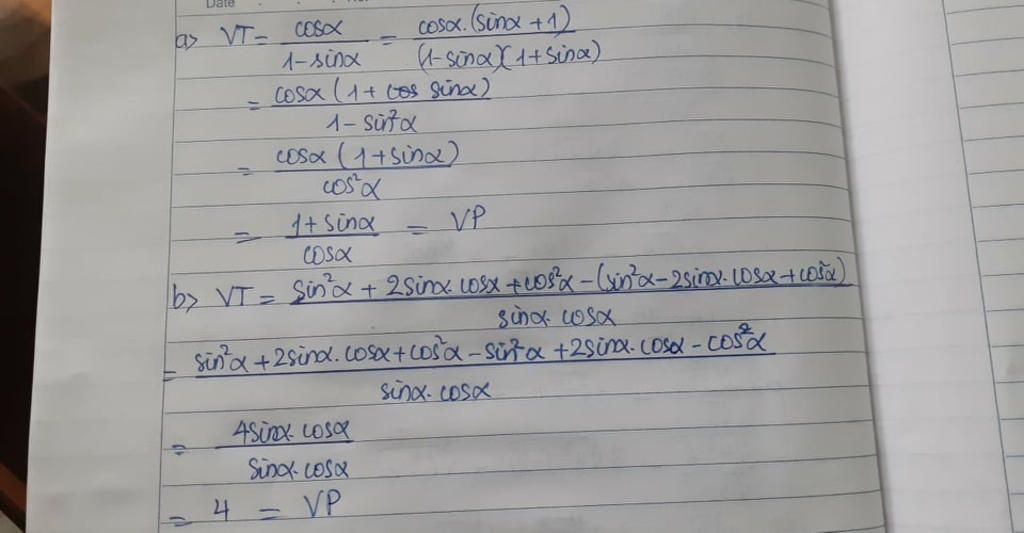 Date
a> VT = cosα / (1-sinα) = cosα.(sinα+1) / (1-sinα)(1+sinα)
= cosα(1+cos sinα) / (1-sin²α)
= cosα(1+sinα) / cos²α
= (1+sinα) / cosα = VP
b> VT = (sin²α + 2sinα.cosα + cos²α - (sin²α - 2sinα.cosα + cos²α)) / (sinα.cosα)
= (sin²α + 2sinα.cosα + cos²α - sin²α + 2sinα.cosα - cos²α) / (sinα.cosα)
= 4sinα.cosα / (sinα.cosα)
= 4 = VP